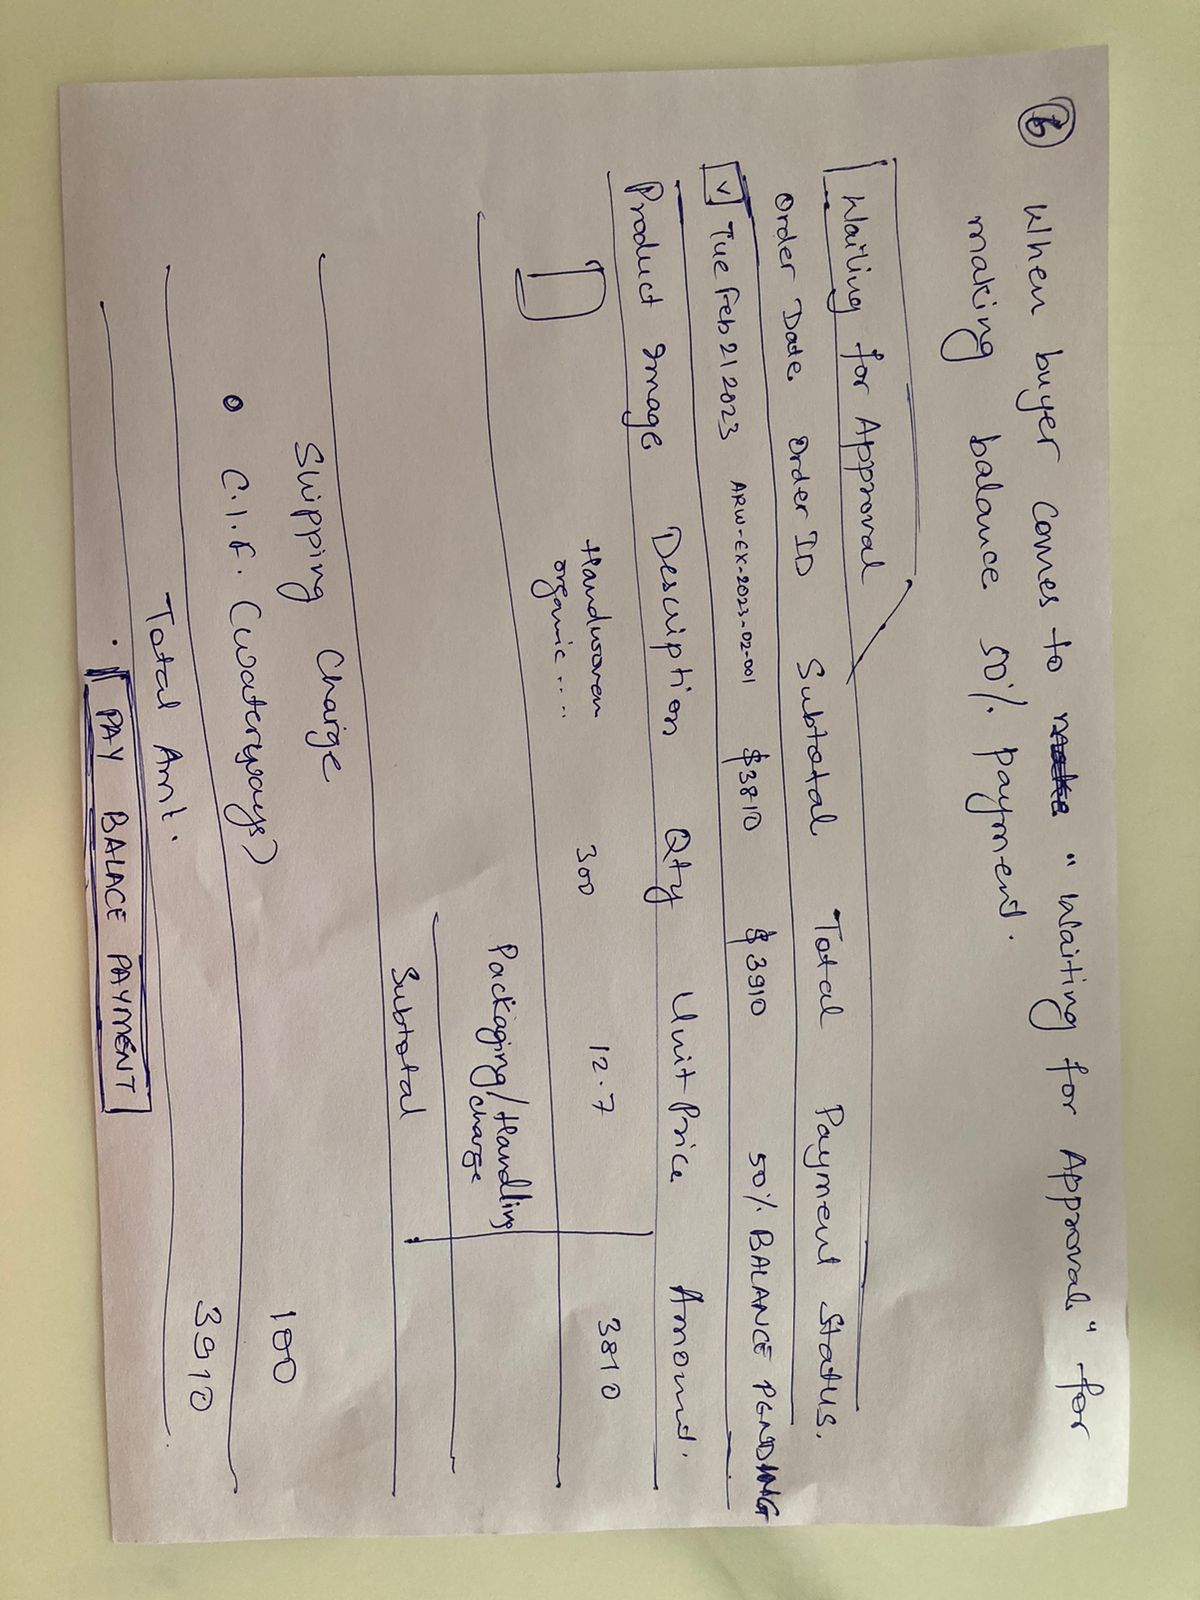 6 When buyer comes to make "Waiting for Approval" for
making balance 50% payment.
Waiting for Approval
Order Date Order ID Subtotal Total Payment Status.
v Tue Feb 21 2023 ARW-EX-2023-02-001 $3810 $3910 50% BALANCE PENDING
Product Image Description Qty Unit Price Amount.
Handwoven 300 12.7 3810
organic ....
Packaging/Handling
charge
Subtotal
Shipping Charge
C.I.F. (waterways) 100
Total Amt. 3910
PAY BALACE PAYMENT